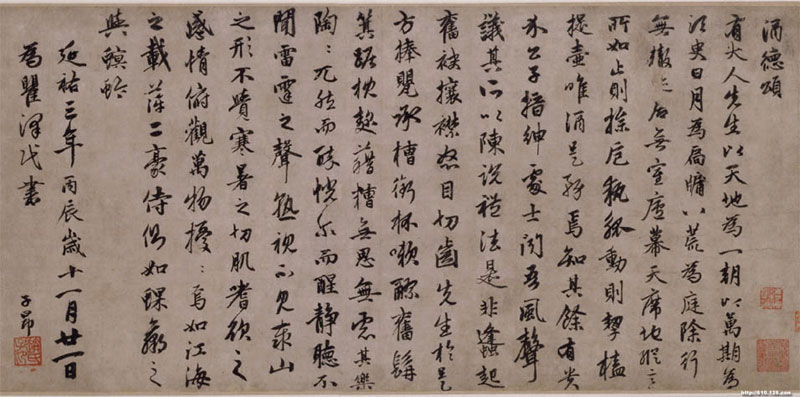 酒德頌
有大人先生以天地為一朝以萬期為
須臾日月為扃牖八荒為庭除行
無轍迹居無室廬幕天席地縱意
所如止則操卮執觚動則挈榼
提壺唯酒是務焉知其餘有貴
介公子搢紳處士聞吾風聲
議其所以陳說禮法是非蠭起
奮袂攘襟怒目切齒先生於是
方捧甖承槽銜杯漱醪奮髯
箕踞枕麴藉糟無思無慮其樂
陶：兀然而醉恍尔而醒靜聽不
聞雷霆之聲熟視不見泰山
之形不覺寒暑之切肌嗜欲之
感情俯觀萬物擾：焉如江海
之載萍二豪侍側如蜾蠃之
與螟蛉
延祐三年丙辰歲十一月廿一日
為瞿澤民書
子昂